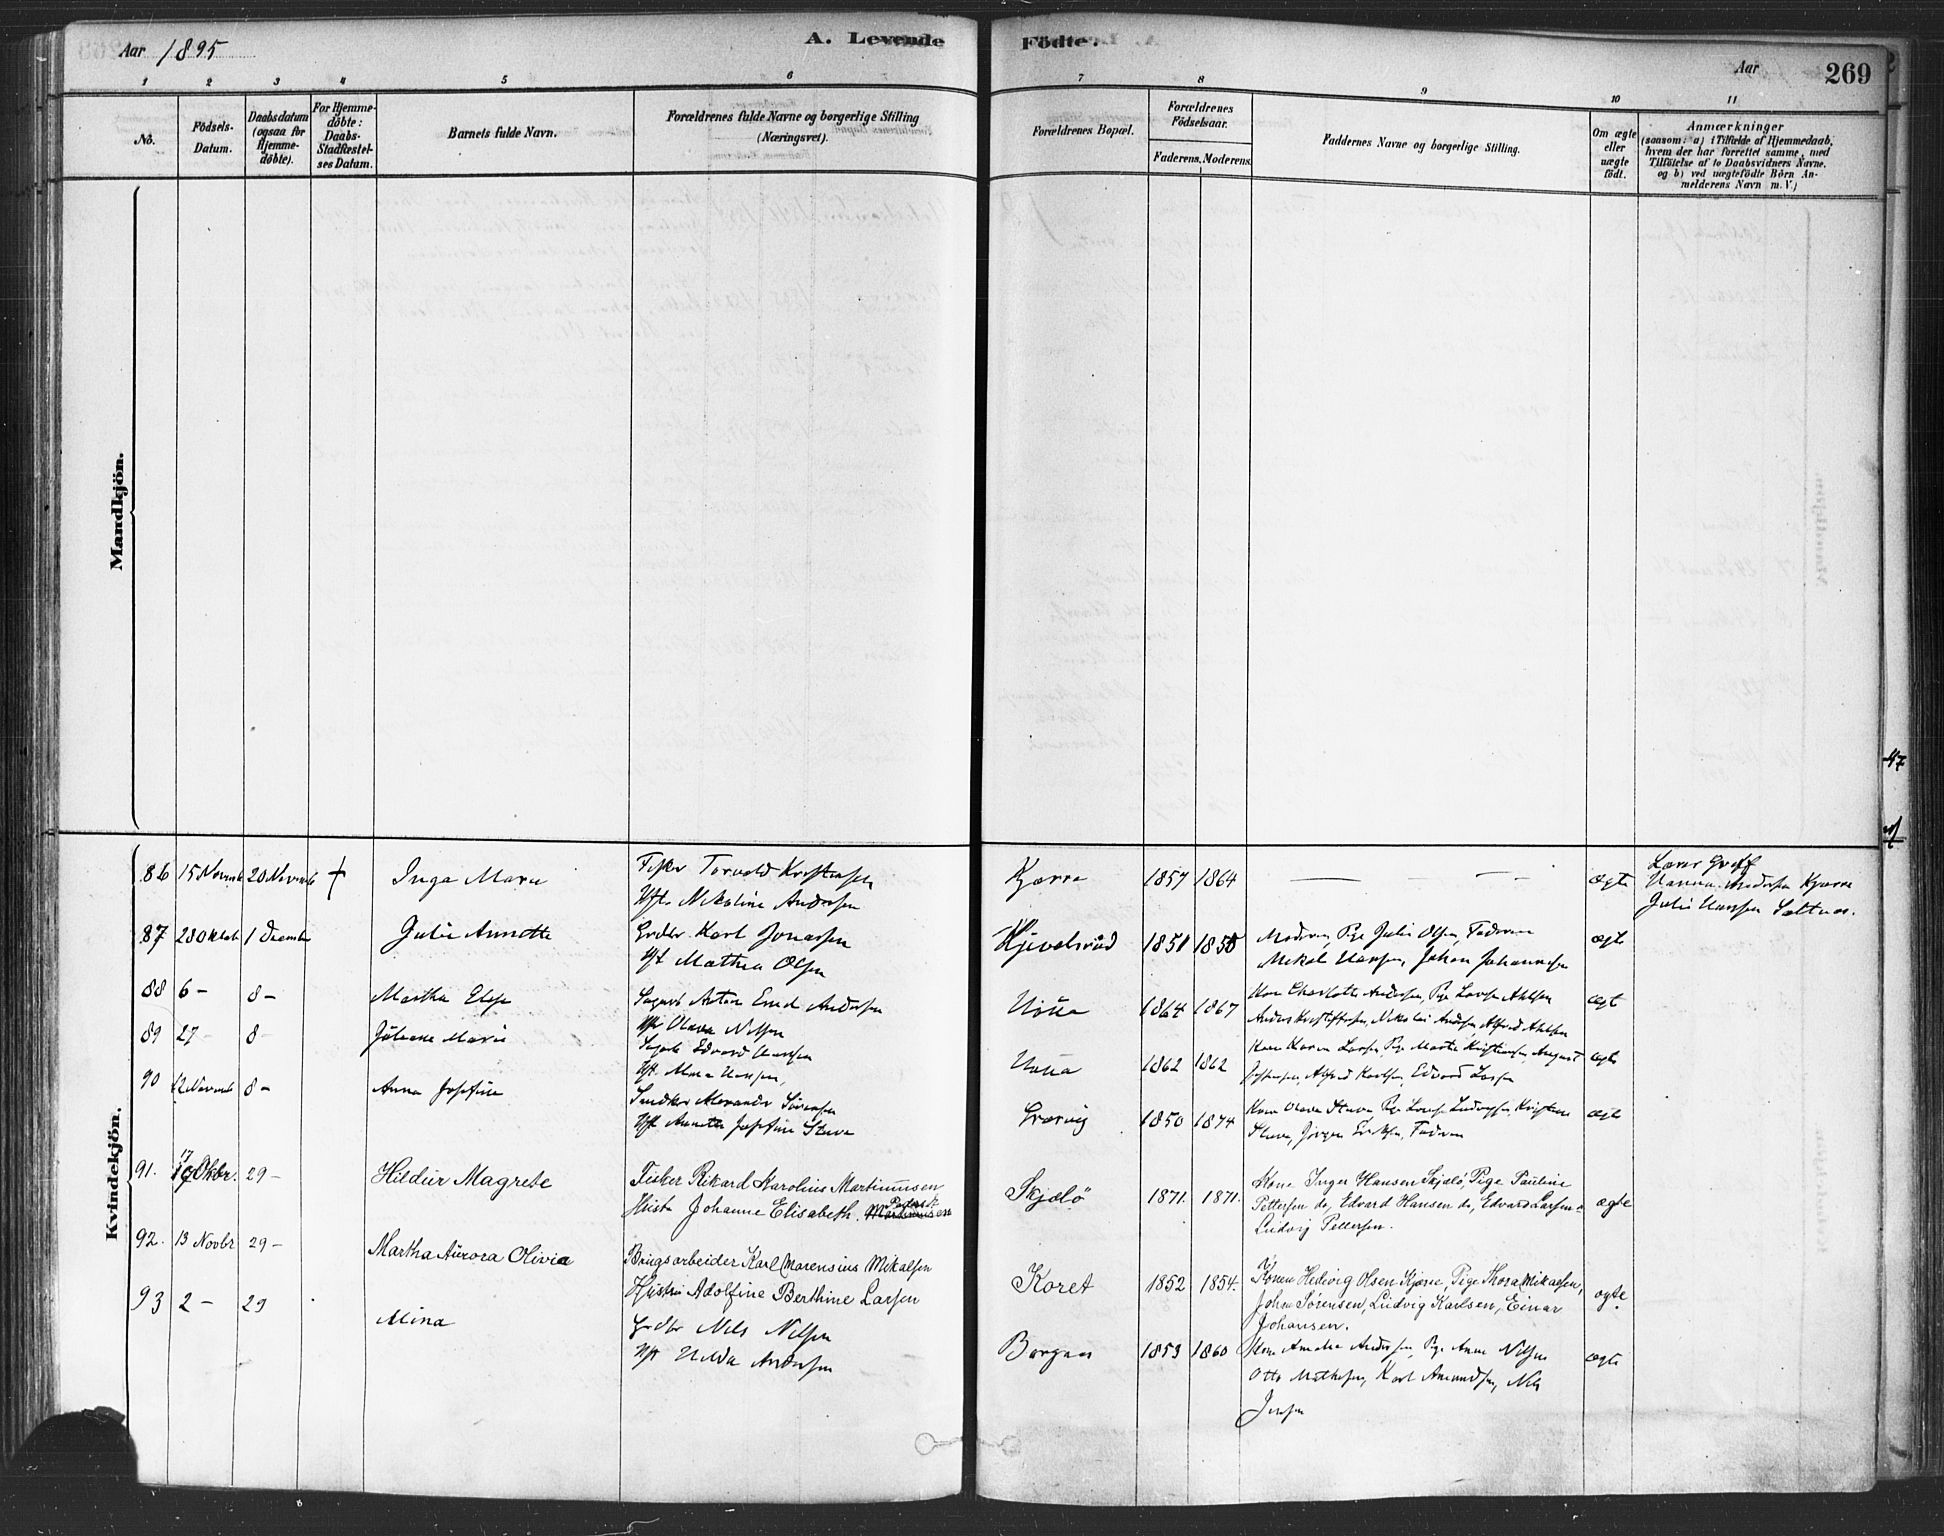 Aar 1895
A. Levende
Födte.
Aar
269
1 2 3 4 5 6 7 8 9 10 11
No.
Födsels-
Datum.
Daabsdatum
(ogsaa for
Hjemme-
döbte).
For Hjemme-
döbte:
Daabs-
Stadfæstel-
ses Datum.
Barnets fulde Navn.
Forældrenes fulde Navne og borgerlige Stilling
(Næringsvei).
Forældrenes Bopæl.
Forældrenes
Födselsaar.
Faderens. Moderens.
Faddernes Navne og borgerlige Stilling.
Om ægte
eller
uægte
födt.
Anmærkninger
(saasom: a) i Tilfælde af Hjemmedaab,
hvem der har forrettet samme, med
Tilföielse af to Daabsvidners Navne,
og b) ved uægtefödte Börn An-
melderens Navn m.V.)
Mandkjön.
Kvindekjön.
86 15 Novemb 20 Novemb † Inga Marie
Fisker Torvald Kristensen
Hst. Nikoline Andersen
Kjærre 1857 1864 ægte
Hanna Andersen Kjærre
Julie Hansen Saltnes.
87 28 Oktob 1 Decembr Julie Annette
Grdbr. Karl Jonassen
Hst Mathea Olsen
1851 1855
Moderen, Pge Julie Olsen, Faderen
Mikal Hansen, Johan Johannesen
ægte
88 6 - 8 - Martha Else
Anton Emil Andersen
Hst Olava Nilsen
1864 1867
Kone Charlotte Andersen, Pge Lovise Ahlsen
Anders Kristoffersen, Nikolai Andersen Alfred Ahlsen
ægt
89 27 - 8 - Juliane Marie
Edvard Hansen
1862 1862
Kone Karen Larsen, Pge Martha Kristiansen, August
Alfred Karlsen, Edvard Larsen
ægte
90 12 Novemb 8 - Anna Josefine
Alexander Sörensen
Hst Annette Josefine Stuve
1850 1874
Kone Olava Stuve, Pge Lovise Ludvigsen, Kristian
Stuve, Jörgen Eriksen, Faderen
ægte
91. 17 Oktbr. 29 - Hildur Magrete
Fisker Rikard Karolius Martinusen
Hustr Johanne Elisabeth
Skjælö 1871. 1871.
Kone Inger Hansen Skjælö, Pige Pauline
Pettersen do, Edvard Hansen do, Edvard Larsen do
Ludvig Pettersen.
ægte
92. 13 Novbr 29 - Martha Aurora Olivia
Brugsarbeider Karl Marensius Mikalsen
Hustru Adolfine Berthine Larsen
Koret 1852 1854.
Konen Hedvig Olsen Kjærre, Pige Thora Mikaelsen,
Johan Sörensen, Ludvig Karlsen, Einar
Johansen.
ægte
93 2 - 29 Mina
Grdbr Nils Nilsen
Hst Hilda Andersen
Borgen 1853 1860
Kone Amalie Andersen, Pge Anna Nilsen
Otto Mathesen, Karl Amundsen, Nils
Jensen
ægte